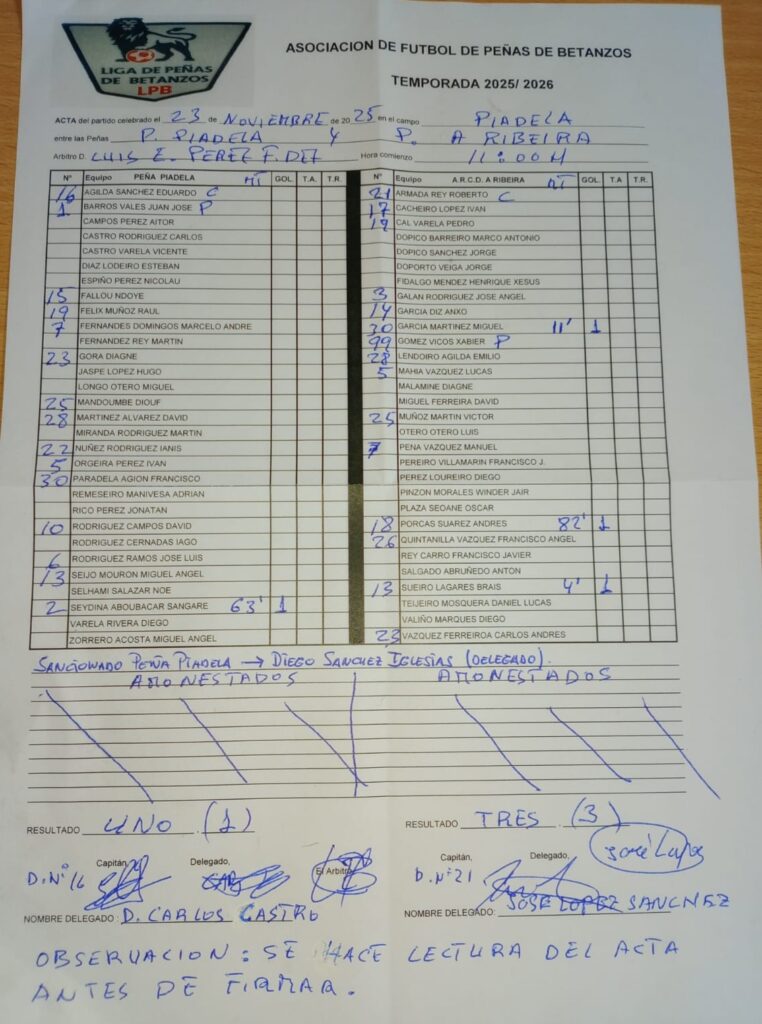 LIGA DE PEÑAS
DE BETANZOS
LPB
ASOCIACION DE FUTBOL DE PEÑAS DE BETANZOS
TEMPORADA 2025/ 2026
ACTA del partido celebrado el 23 de NOVIEMBRE de 2025 en el campo PIADELA
entre las Peñas P. PIADELA Y P. A RIBEIRA
Arbitro D. LUIS E. PEREZ Hora comienzo 11:00 H
Nº Equipo PEÑA PIADELA MT GOL. T.A. T.R.
16 AGILDA SANCHEZ EDUARDO C
1 BARROS VALES JUAN JOSE P
CAMPOS PEREZ AITOR
CASTRO RODRIGUEZ CARLOS
CASTRO VARELA VICENTE
DIAZ LODEIRO ESTEBAN
ESPIÑO PEREZ NICOLAU
15 FALLOU NDOYE
19 FELIX MUÑOZ RAUL
7 FERNANDES DOMINGOS MARCELO ANDRE
FERNANDEZ REY MARTIN
23 GORA DIAGNE
JASPE LOPEZ HUGO
LONGO OTERO MIGUEL
25 MANDOUMBE DIOUF
28 MARTINEZ ALVAREZ DAVID
MIRANDA RODRIGUEZ MARTIN
22 NUÑEZ RODRIGUEZ IANIS
5 ORGEIRA PEREZ IVAN
30 PARADELA AGION FRANCISCO
REMESEIRO MANIVESA ADRIAN
RICO PEREZ JONATAN
10 RODRIGUEZ CAMPOS DAVID
RODRIGUEZ CERNADAS IAGO
6 RODRIGUEZ RAMOS JOSE LUIS
13 SEIJO MOURON MIGUEL ANGEL
SELHAMI SALAZAR NOE
2 SEYDINA ABOUBACAR SANGARE 63' 1
VARELA RIVERA DIEGO
ZORRERO ACOSTA MIGUEL ANGEL
Nº Equipo A.R.C.D. A RIBEIRA MT GOL. T.A T.R.
21 ARMADA REY ROBERTO C
17 CACHEIRO LOPEZ IVAN
19 CAL VARELA PEDRO
DOPICO BARREIRO MARCO ANTONIO
DOPICO SANCHEZ JORGE
DOPORTO VEIGA JORGE
FIDALGO MENDEZ HENRIQUE XESUS
3 GALAN RODRIGUEZ JOSE ANGEL
14 GARCIA DIZ ANXO
30 GARCIA MARTINEZ MIGUEL 11' 1
99 GOMEZ VICOS XABIER P
28 LENDOIRO AGILDA EMILIO
5 MAHIA VAZQUEZ LUCAS
MALAMINE DIAGNE
MIGUEL FERREIRA DAVID
25 MUÑOZ MARTIN VICTOR
OTERO OTERO LUIS
7 PENA VAZQUEZ MANUEL
PEREIRO VILLAMARIN FRANCISCO J.
PEREZ LOUREIRO DIEGO
PINZON MORALES WINDER JAIR
PLAZA SEOANE OSCAR
18 PORCAS SUAREZ ANDRES 82' 1
26 QUINTANILLA VAZQUEZ FRANCISCO ANGEL
REY CARRO FRANCISCO JAVIER
SALGADO ABRUÑEDO ANTON
13 SUEIRO LAGARES BRAIS 4' 1
TEIJEIRO MOSQUERA DANIEL LUCAS
VALIÑO MARQUES DIEGO
23 VAZQUEZ FERREIROA CARLOS ANDRES
SANCIONADO PEÑA PIADELA → DIEGO SANCHEZ IGLESIAS (DELEGADO).
AMONESTADOS AMONESTADOS
RESULTADO UNO (1) RESULTADO TRES (3)
Capitán, Delegado, El Arbitro Capitán, Delegado, José Lopez
D. Nº 16 D. Nº 21
NOMBRE DELEGADO: D. CARLOS CASTRO NOMBRE DELEGADO: JOSE LOPEZ SANCHEZ
OBSERVACION: SE HACE LECTURA DEL ACTA
ANTES DE FIRMAR.